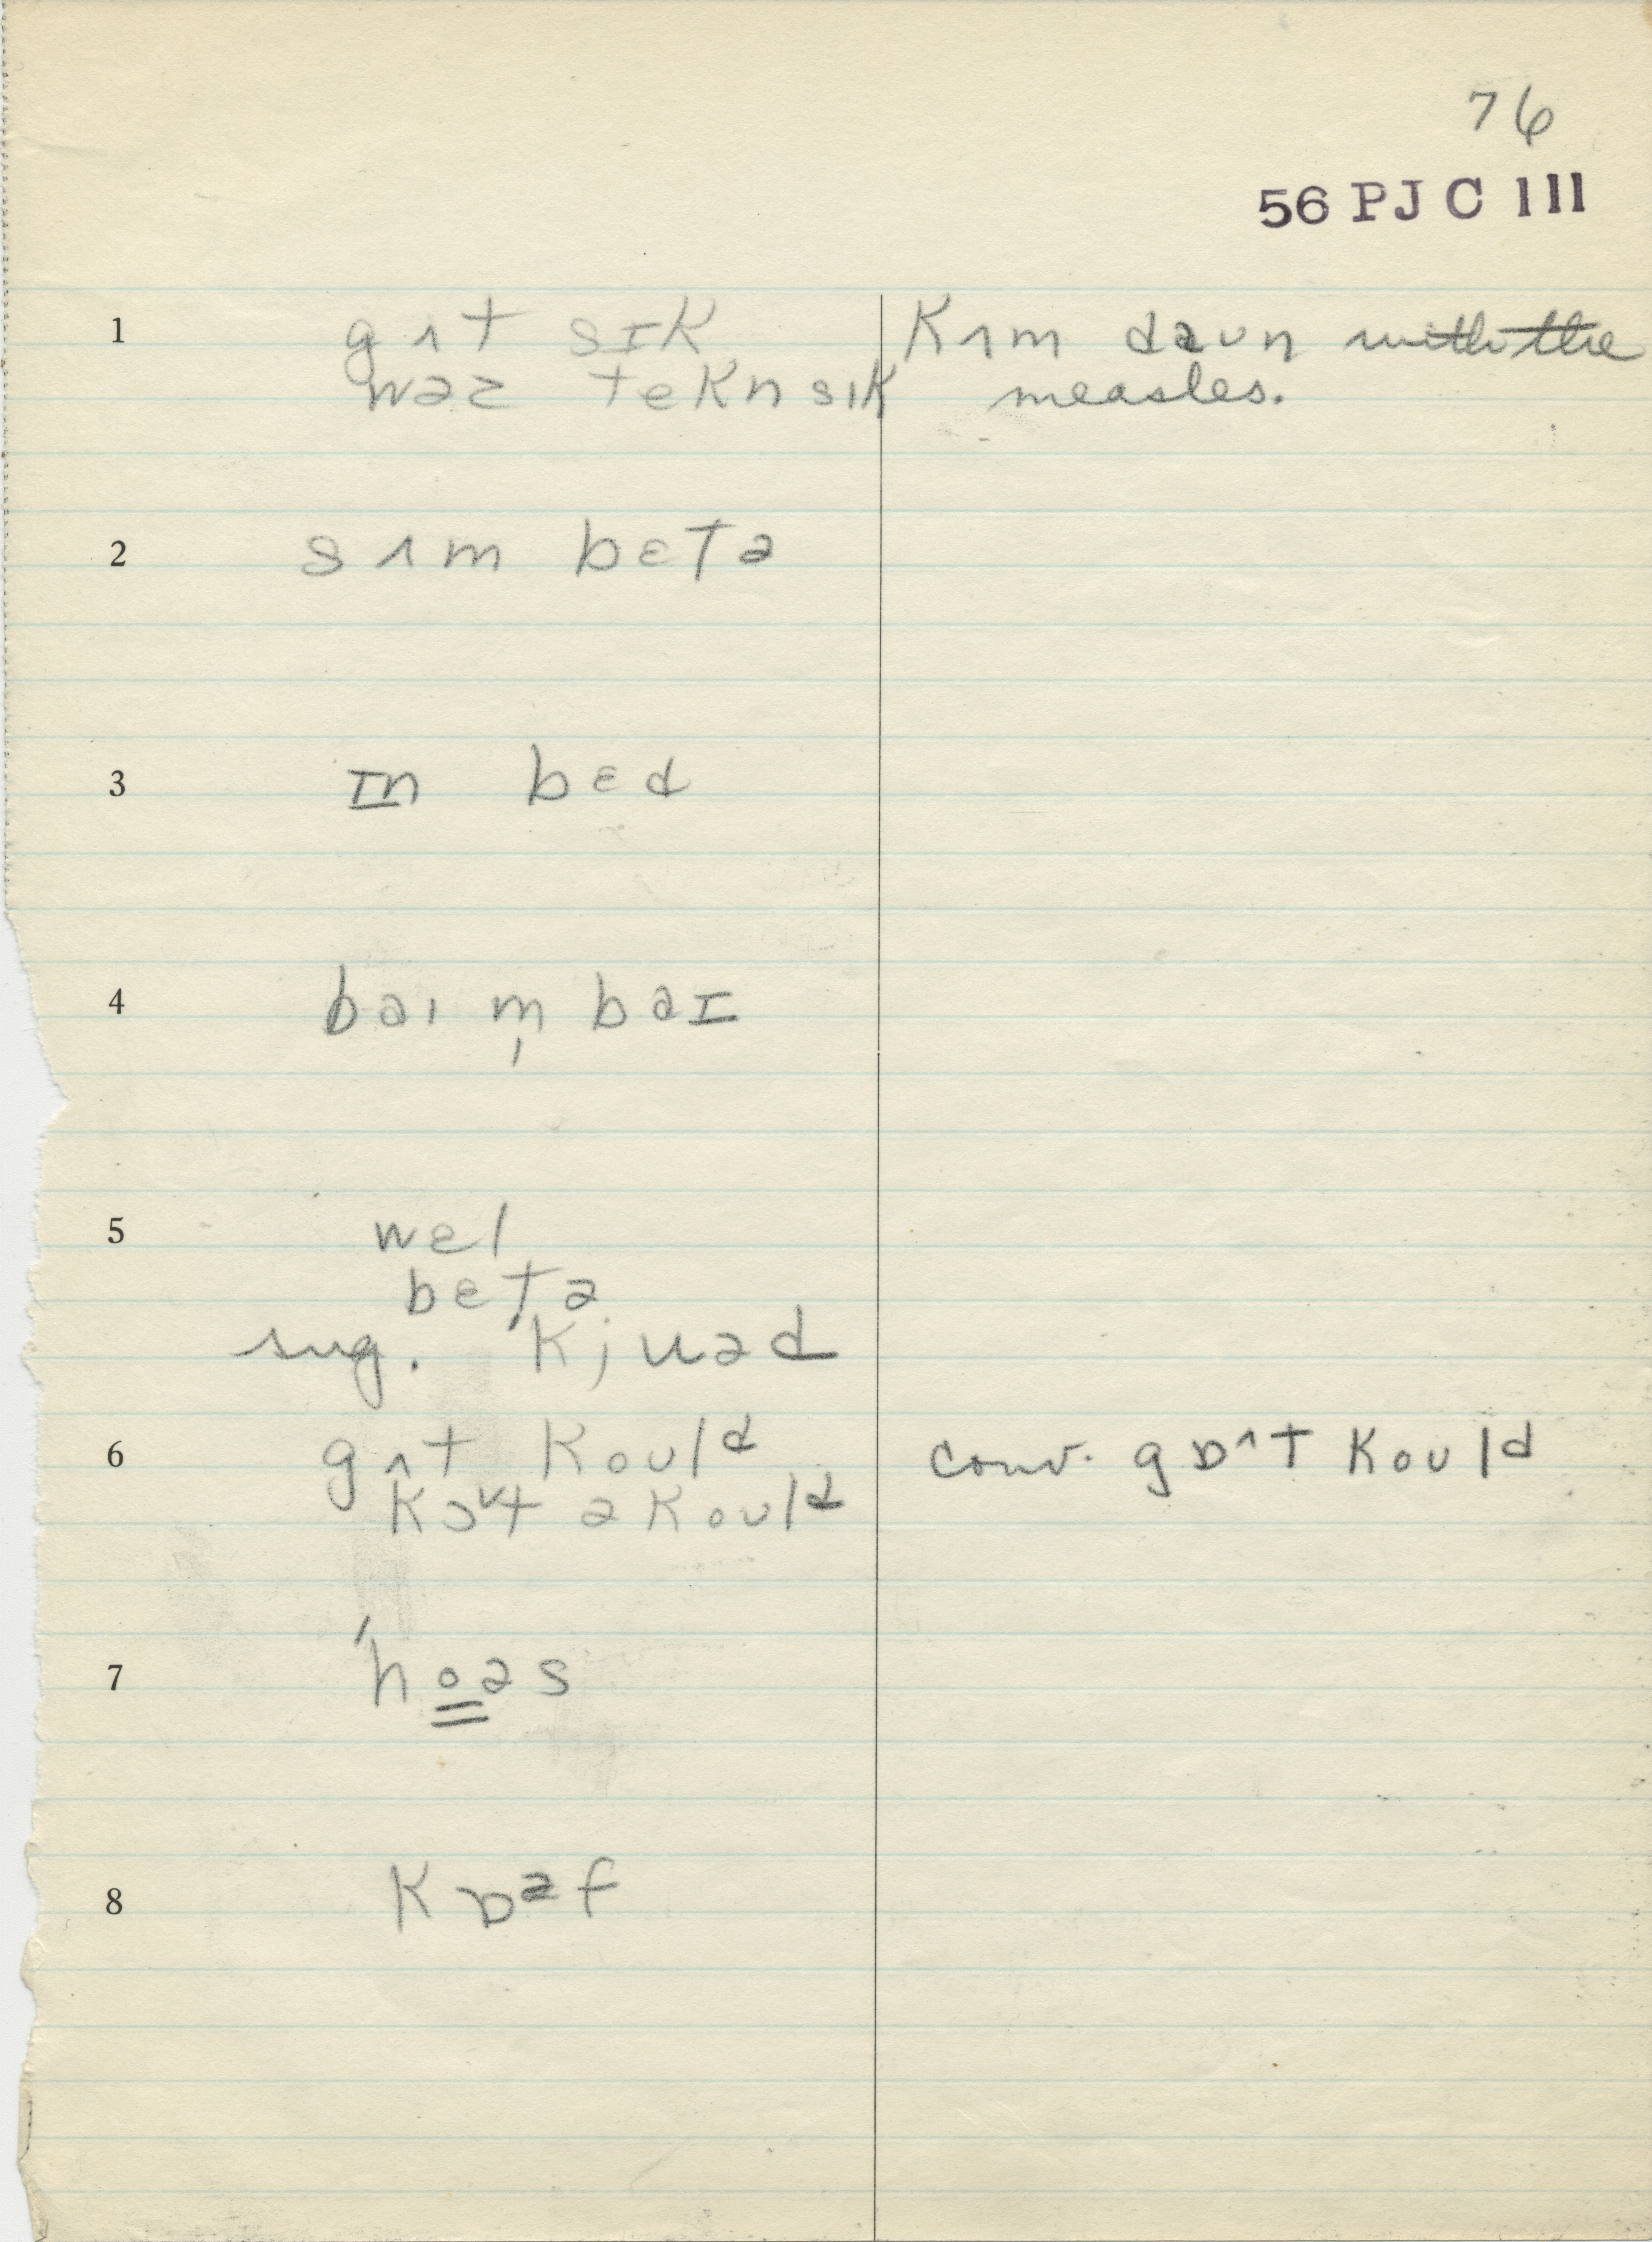 76
56 PJC 111
1 gʌt sɪk
wəz tekn sɪk
kʌm daun with the
measles.
2 sʌm bɛtə
3 ɪn bɛd
4 baɪ m̩ baɪ
5 wɛl
bɛtə
sug. kjuəd
6 gʌt kould
kɔt ə kould
conv. gɒʌt kould
7 'hoəs
8 kɒəf